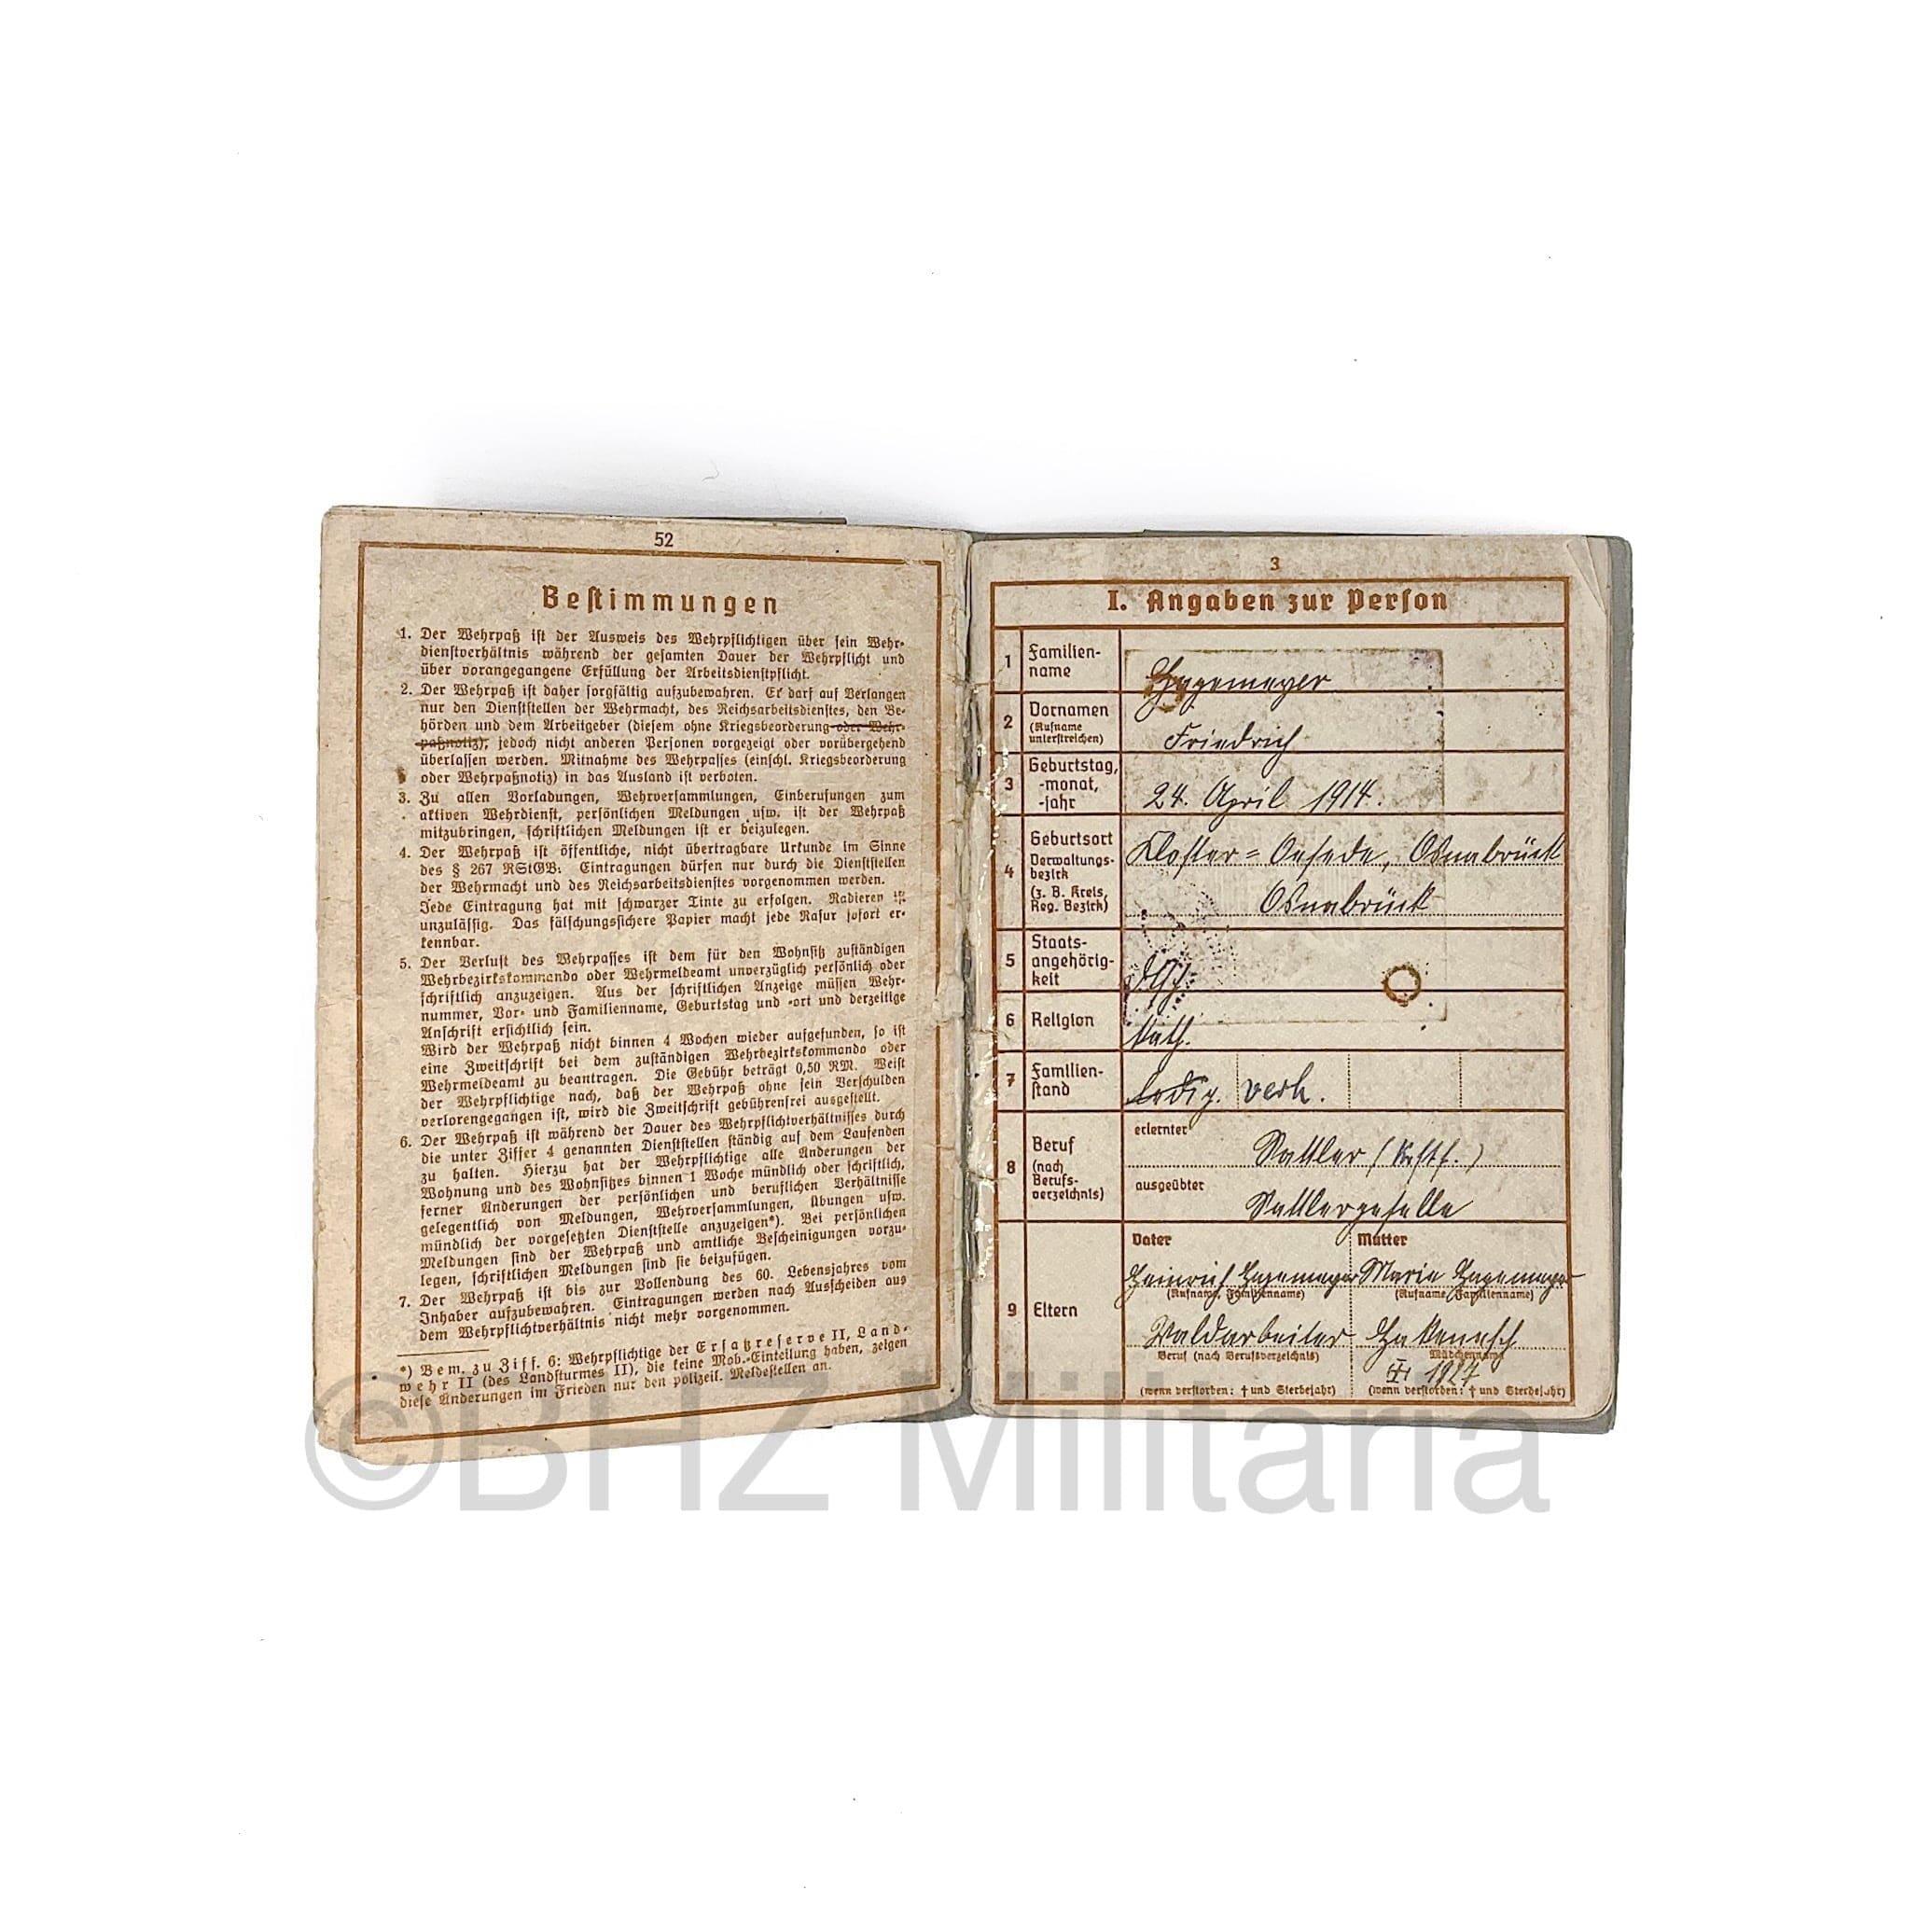 52
Bestimmungen
1. Der Wehrpaß ist der Ausweis des Wehrpflichtigen über sein Wehr-
dienstverhältnis während der gesamten Dauer der Wehrpflicht und
über vorangegangene Erfüllung der Arbeitsdienstpflicht.
2. Der Wehrpaß ist daher sorgfältig aufzubewahren. Er darf auf Verlangen
nur den Dienststellen der Wehrmacht, des Reichsarbeitsdienstes, den Be-
hörden und dem Arbeitgeber (diesem ohne Kriegsbeorderung oder Wehr-
paßnotiz), jedoch nicht anderen Personen vorgezeigt oder vorübergehend
überlassen werden. Mitnahme des Wehrpasses (einschl. Kriegsbeorderung
oder Wehrpaßnotiz) in das Ausland ist verboten.
3. Zu allen Vorladungen, Wehrversammlungen, Einberufungen zum
aktiven Wehrdienst, persönlichen Meldungen usw. ist der Wehrpaß
mitzubringen, schriftlichen Meldungen ist er beizulegen.
4. Der Wehrpaß ist öffentliche, nicht übertragbare Urkunde im Sinne
des § 267 RStGB. Eintragungen dürfen nur durch die Dienststellen
der Wehrmacht und des Reichsarbeitsdienstes vorgenommen werden.
Jede Eintragung hat mit schwarzer Tinte zu erfolgen. Radieren ist
unzulässig. Das fälschungssichere Papier macht jede Rasur sofort er-
kennbar.
5. Der Verlust des Wehrpasses ist dem für den Wohnsitz zuständigen
Wehrbezirkskommando oder Wehrmeldeamt unverzüglich persönlich oder
schriftlich anzuzeigen. Aus der schriftlichen Anzeige müssen Wehr-
nummer, Vor- und Familienname, Geburtstag und -ort und derzeitige
Anschrift ersichtlich sein.
Wird der Wehrpaß nicht binnen 4 Wochen wieder aufgefunden, so ist
eine Zweitschrift bei dem zuständigen Wehrbezirkskommando oder
Wehrmeldeamt zu beantragen. Die Gebühr beträgt 0,50 RM. Weist
der Wehrpflichtige nach, daß der Wehrpaß ohne sein Verschulden
verlorengegangen ist, wird die Zweitschrift gebührenfrei ausgestellt.
6. Der Wehrpaß ist während der Dauer des Wehrpflichtverhältnisses durch
die unter Ziffer 4 genannten Dienststellen ständig auf dem Laufenden
zu halten. Hierzu hat der Wehrpflichtige alle Änderungen der
Wohnung und des Wohnsitzes binnen 1 Woche mündlich oder schriftlich,
ferner Änderungen der persönlichen und beruflichen Verhältnisse
gelegentlich von Meldungen, Wehrversammlungen, Übungen usw.
mündlich der vorgesetzten Dienststelle anzuzeigen*). Bei persönlichen
Meldungen sind der Wehrpaß und amtliche Bescheinigungen vorzu-
legen, schriftlichen Meldungen sind sie beizufügen.
7. Der Wehrpaß ist bis zur Vollendung des 60. Lebensjahres vom
Inhaber aufzubewahren. Eintragungen werden nach Ausscheiden aus
dem Wehrpflichtverhältnis nicht mehr vorgenommen.
*) Bem. zu Ziff. 6: Wehrpflichtige der Ersatzreserve II, Land-
wehr II (des Landsturmes II), die keine Mob.-Einteilung haben, zeigen
diese Änderungen im Frieden nur den polizeil. Meldestellen an.
3
I. Angaben zur Person
1 Familien-
name
Hagemeyer
2 Vornamen
(Rufname
unterstreichen)
Friedrich
3 Geburtstag,
-monat,
-jahr
24. April 1914.
4 Geburtsort
Verwaltungs-
bezirk
(z. B. Kreis,
Reg. Bezirk)
Kloster=Oesede, Osnabrück
Osnabrück
5 Staats-
angehörig-
keit
6 Religion
kath.
7 Familien-
stand
ledig. verh.
8 Beruf
(nach
Berufs-
verzeichnis)
erlernter
Sattler
ausgeübter
Sattlergeselle
9 Eltern
Vater Mutter
Heinrich Hagemeyer Marie Hagemeyer
(Rufname, Familienname) (Rufname, Familienname)
Waldarbeiter
Beruf (nach Berufsverzeichnis) Mädchenname
1927
(wenn verstorben: † und Sterbejahr) (wenn verstorben: † und Sterbejahr)
©BHZ Militaria